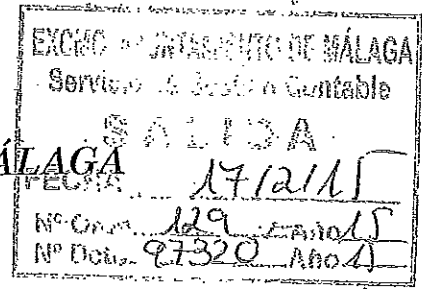 EXCMO AYUNTAMIENTO DE MÁLAGA
Servicio de Gestión Contable
SALIDA
ÁLAGA
FECHA 17/2/15
Nº Ord. 129 Año 15
Nº Doc. 97320 Año 15